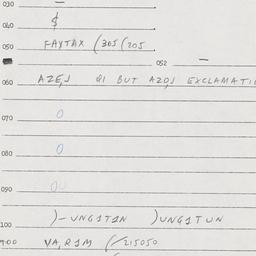 030 —
040 $
050 FAYTAX (305(205
052 —
060 AZE,J GI BUT AZOJ EXCLAMATI
070 0
080 0
090 0
100 )-UNGSTSN )UNGSTUN
400 VA,RIM (/215050